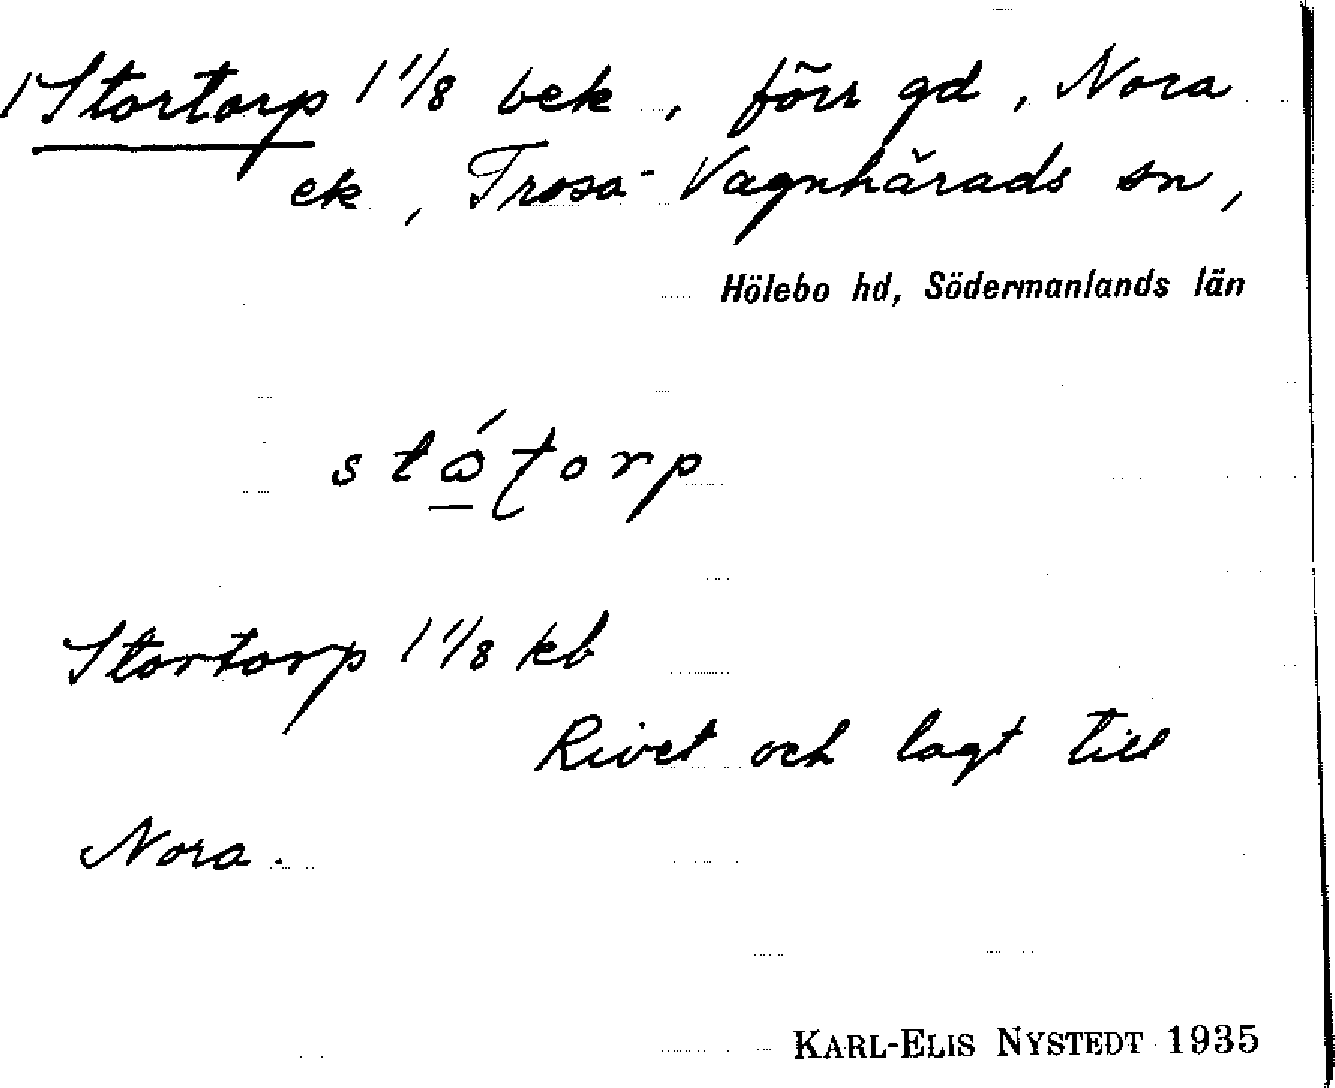 1 Stortorp 1 1/8 bek, förr gd, Nora
ek, Trosa-Vagnhärads sn,
Hölebo hd, Södermanlands län
stótorp
Stortorp 1 1/8 kb
Rivet och lagt till
Nora.
KARL-ELIS NYSTEDT 1935